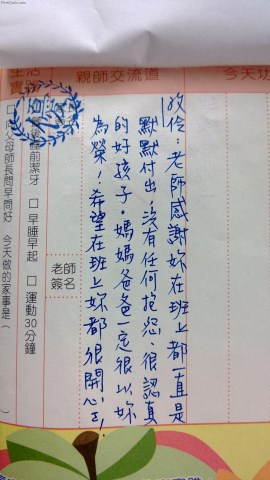 親師交流道
今天功
玫伶：老師感謝妳在班上都一直是
默默付出，沒有任何抱怨、很認真
的好孩子。媽媽爸爸一定很以妳
為榮！希望在班上妳都很開心
老師
簽名
前潔牙 □早睡早起 □運動30分鐘
父母師長問早問好 今天做的家事是（